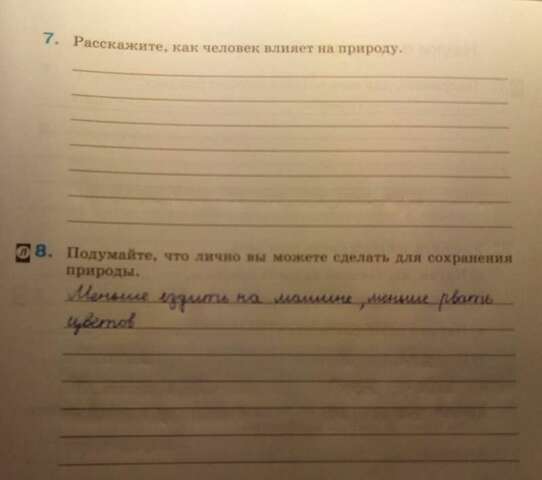 7. Расскажите, как человек влияет на природу.
Л 8. Подумайте, что лично вы можете сделать для сохранения
природы.
Меньше ездить на машине, меньше рвать
цветов